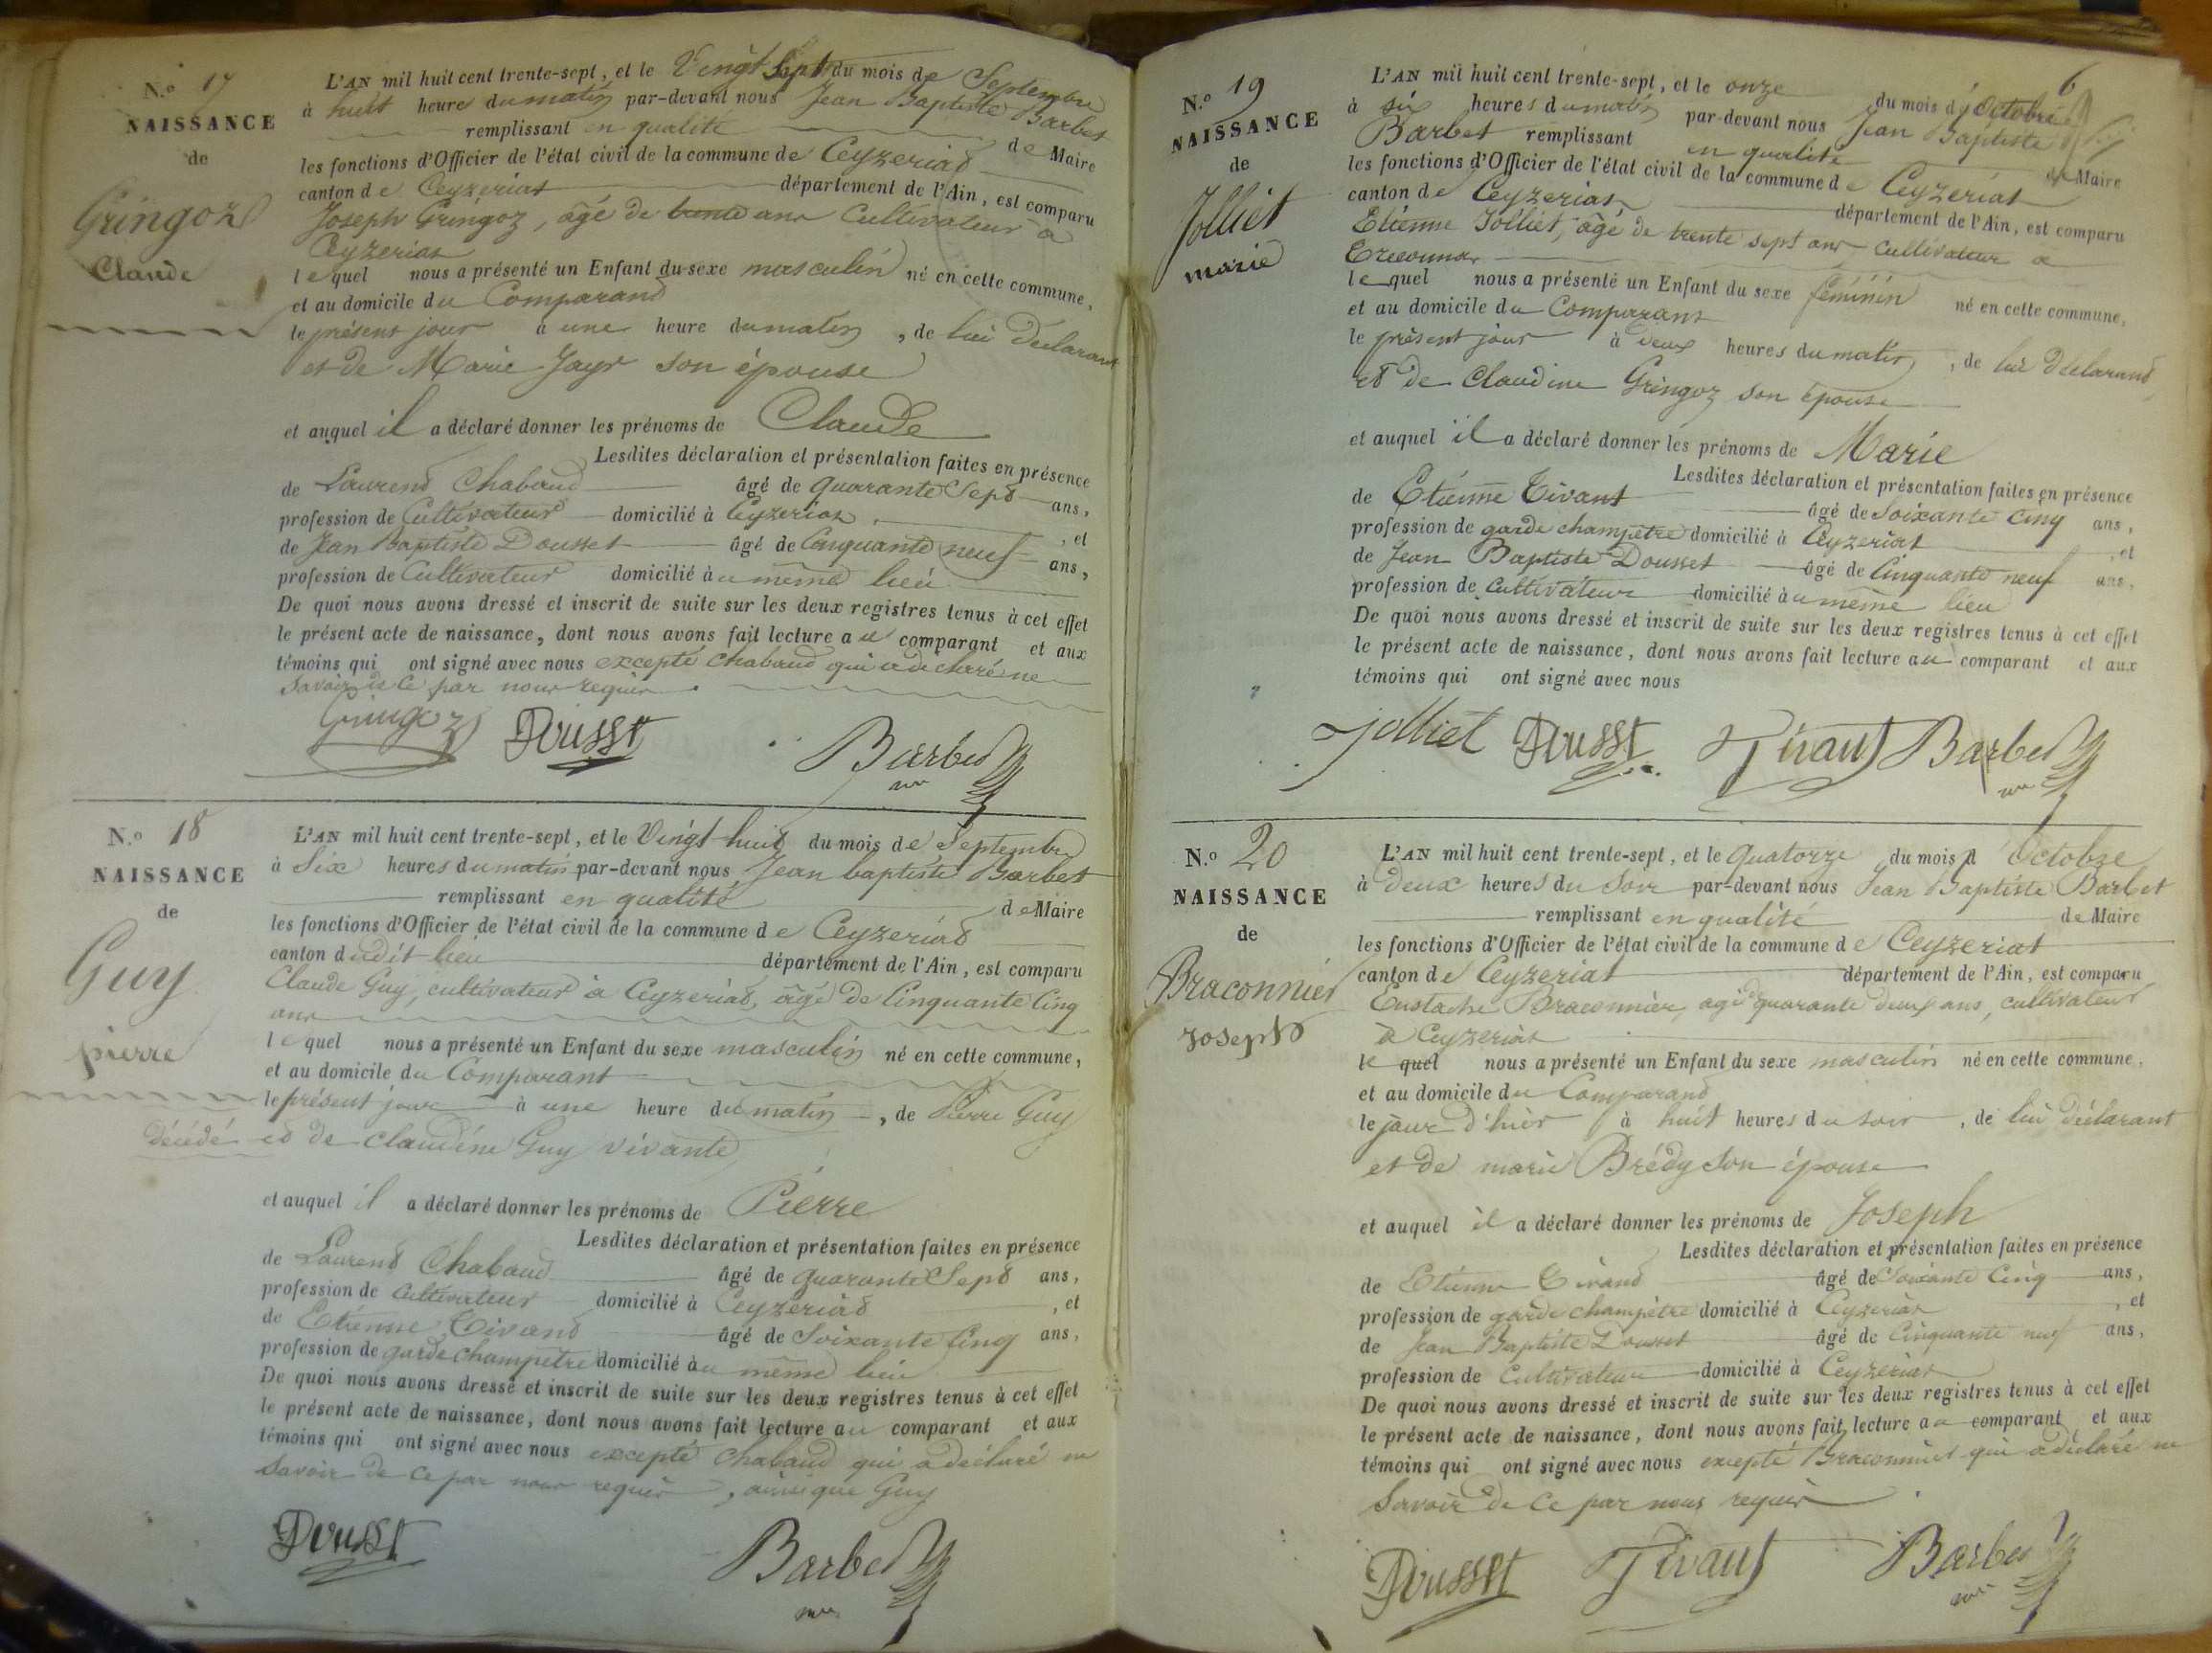 N.o 17
NAISSANCE
de
Gringoz
Claude
L'AN mil huit cent trente-sept, et le Vingt Sept du mois de Septembre
à huit heure du matin par-devant nous Jean Baptiste Barbet
remplissant en qualité de Maire
les fonctions d'Officier de l'état civil de la commune de Ceyzeriat
canton de Ceyzeriat département de l'Ain, est comparu
Joseph Gringoz, âgé de trente ans Cultivateur à
Ceyzeriat
lequel nous a présenté un Enfant du sexe masculin né en cette commune,
et au domicile du Comparand
le présent jour à une heure du matin, de lui déclarant
et de Marie Jayr son épouse
et auquel il a déclaré donner les prénoms de Claude
Lesdites déclaration et présentation faites en présence
de Laurend Chabaud âgé de quarante Sept ans,
profession de Cultivateur domicilié à Ceyzeriat, et
de Jean Baptiste Dousset âgé de Cinquante neuf ans,
profession de Cultivateur domicilié au même lieu
De quoi nous avons dressé et inscrit de suite sur les deux registres tenus à cet effet
le présent acte de naissance, dont nous avons fait lecture au comparant et aux
témoins qui ont signé avec nous excepté Chabaud qui a déclaré ne
savoir de ce par nous requis.
Gringoz Dousset Barbet
N.o 18
NAISSANCE
de
Guy
pierre
décédé
L'AN mil huit cent trente-sept, et le Vingt huit du mois de Septembre
à Six heures du matin par-devant nous Jean baptiste Barbet
remplissant en qualité de Maire
les fonctions d'Officier de l'état civil de la commune de Ceyzeriat
canton dudit lieu département de l'Ain, est comparu
Claude Guy, cultivateur à Ceyzeriat, âgé de Cinquante Cinq
ans
lequel nous a présenté un Enfant du sexe masculin né en cette commune,
et au domicile du Comparant
le présent jour à une heure du matin, de Pierre Guy
et de claudine Guy vivante
et auquel il a déclaré donner les prénoms de Pierre
Lesdites déclaration et présentation faites en présence
de Laurend Chabaud âgé de quarante Sept ans,
profession de Cultivateur domicilié à Ceyzeriat, et
de Etienne Tivand âgé de Soixante Cinq ans,
profession de garde champêtre domicilié au même lieu
De quoi nous avons dressé et inscrit de suite sur les deux registres tenus à cet effet
le présent acte de naissance, dont nous avons fait lecture au comparant et aux
témoins qui ont signé avec nous excepté Chabaud qui a déclaré ne
savoir de ce par nous requis, ainsi que Guy
Dousset Barbet
6
N.o 19
NAISSANCE
de
Jolliet
marie
L'AN mil huit cent trente-sept, et le onze du mois d'Octobre
à six heures du matin par-devant nous Jean Baptiste
Barbet remplissant en qualité de Maire
les fonctions d'Officier de l'état civil de la commune de Ceyzeriat
canton de Ceyzeriat département de l'Ain, est comparu
Etienne Jolliet, âgé de trente sept ans cultivateur à
lequel nous a présenté un Enfant du sexe féminin né en cette commune,
et au domicile du Comparant
le présent jour à deux heures du matin, de lui déclarand,
et de Claudine Gringoz son épouse
et auquel il a déclaré donner les prénoms de Marie
Lesdites déclaration et présentation faites en présence
de Etienne Tivant âgé de soixante cinq ans,
profession de garde champêtre domicilié à Ceyzeriat, et
de Jean Baptiste Dousset âgé de Cinquante neuf ans,
profession de cultivateur domicilié au même lieu
De quoi nous avons dressé et inscrit de suite sur les deux registres tenus à cet effet
le présent acte de naissance, dont nous avons fait lecture au comparant et aux
témoins qui ont signé avec nous
Jolliet Dousset Tivant Barbet
N.o 20
NAISSANCE
de
Braconnier
Joseph
L'AN mil huit cent trente-sept, et le Quatorze du mois d Octobre
à deux heures du Soir par-devant nous Jean Baptiste Barbet
remplissant en qualité de Maire
les fonctions d'Officier de l'état civil de la commune de Ceyzeriat
canton de Ceyzeriat département de l'Ain, est comparu
Eustache Braconnier, agé quarante deux ans, cultivateur
à Ceyzeriat
lequel nous a présenté un Enfant du sexe masculin né en cette commune,
et au domicile du Comparand
le jour d'hier à huit heures du soir, de lui déclarant
et de marie Brédy son épouse
et auquel il a déclaré donner les prénoms de Joseph
Lesdites déclaration et présentation faites en présence
de Etienne Tivand âgé de Soixante Cinq ans,
profession de garde champêtre domicilié à Ceyzeriat, et
de Jean Baptiste Dousset âgé de Cinquante neuf ans,
profession de Cultivateur domicilié à Ceyzeriat
De quoi nous avons dressé et inscrit de suite sur les deux registres tenus à cet effet
le présent acte de naissance, dont nous avons fait lecture au comparant et aux
témoins qui ont signé avec nous excepté Braconnier qui a déclaré ne
Savoir de ce par nous requis
Dousset Tivant Barbet